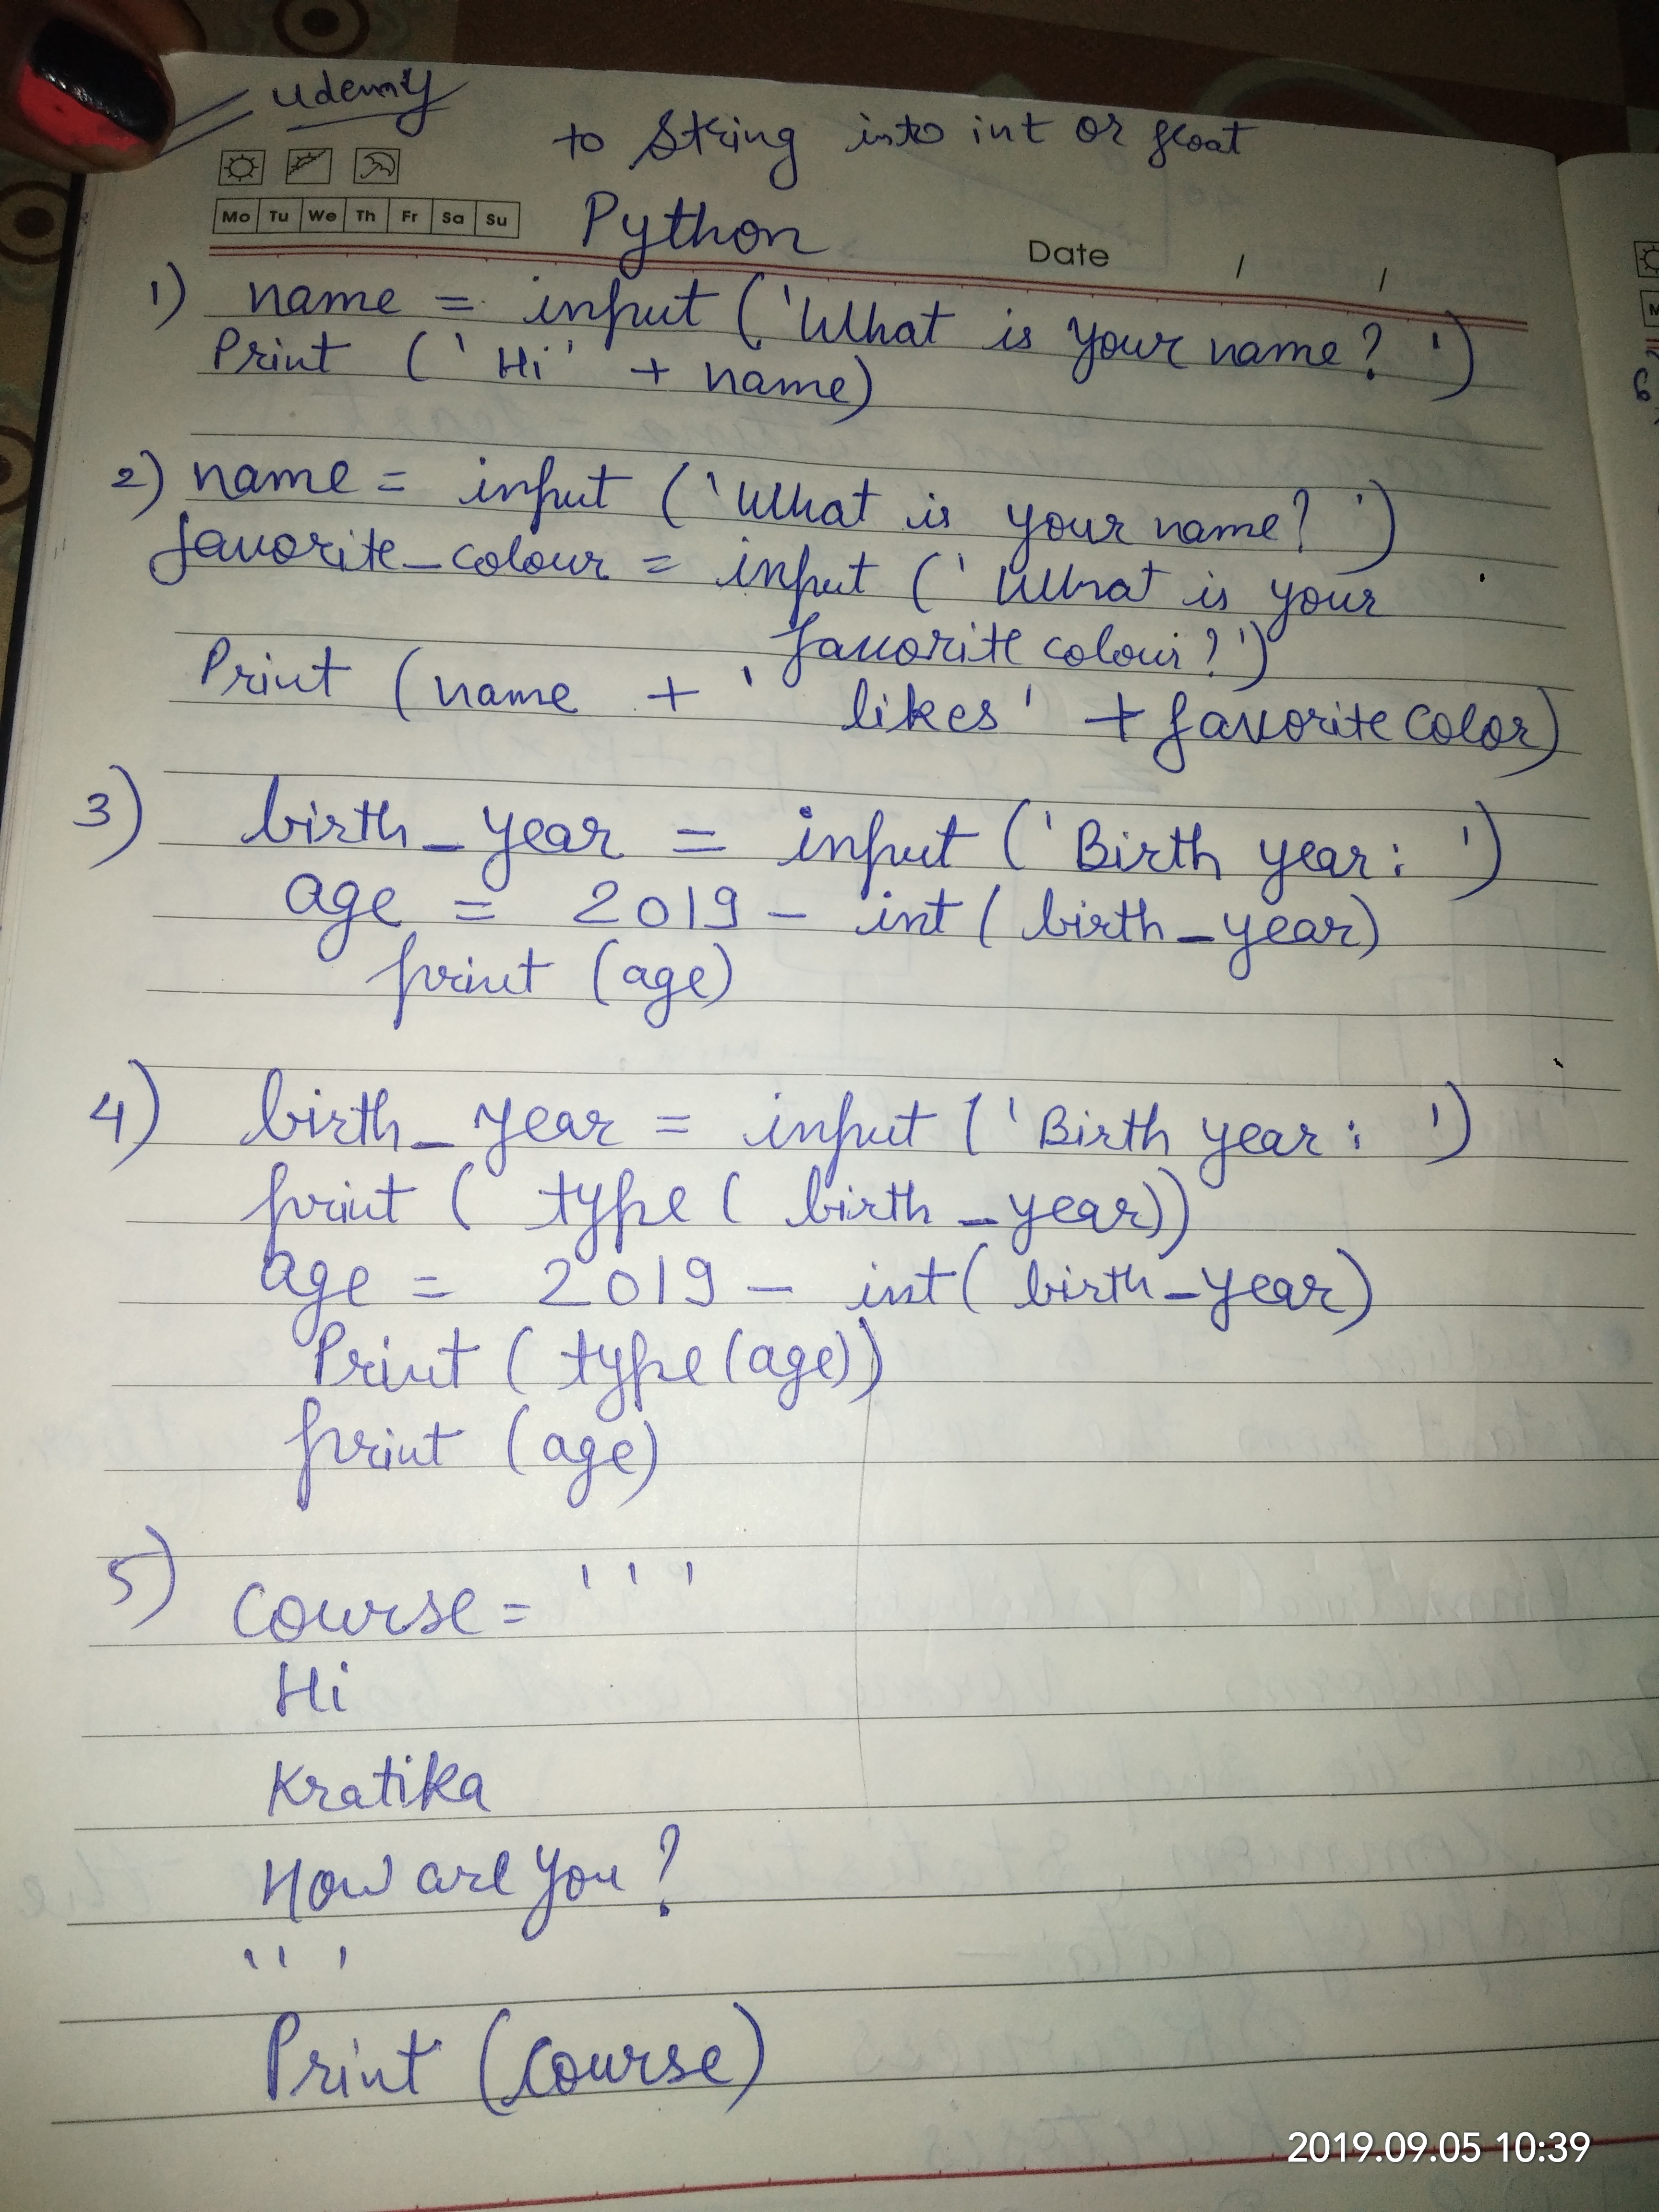 udemy
to string into int or float
Mo Tu We Th Fr Sa Su
Python
Date / /
1) name = input ('What is your name? ')
Print ('Hi' + name)
2) name = input ('What is your name? ')
favorite_colour = input ('What is your
favorite colour?')
Print (name + ' likes' + favorite color)
3) birth_year = input ('Birth year: ')
age = 2019 - int( birth_year)
print (age)
4) birth_year = input ('Birth year: ')
print ( type ( birth_year))
age = 2019 - int( birth_year)
Print ( type (age))
print (age)
5) Course = '''
Hi
Kratika
How are you?
'''
Print (course)
2019.09.05 10:39